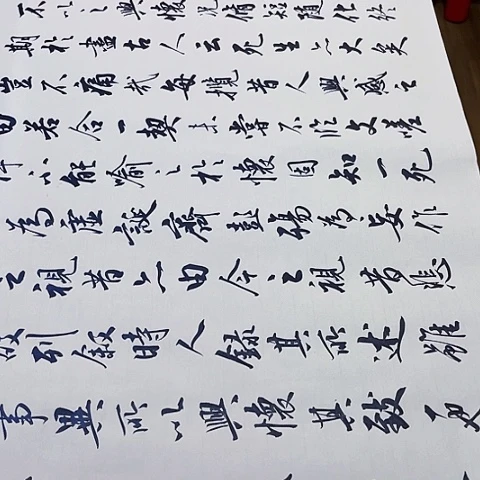 不以之興懷況脩短隨化終
期於盡古人云死生亦大矣
豈不痛哉每攬昔人興感之
由若合一契未嘗不臨文嗟
悼不能喻之於懷固知一死
為虛誕齊彭殤為妄作
之視昔亦由今之視昔悲
故列敘時人錄其所述雖
事異所以興懷其致